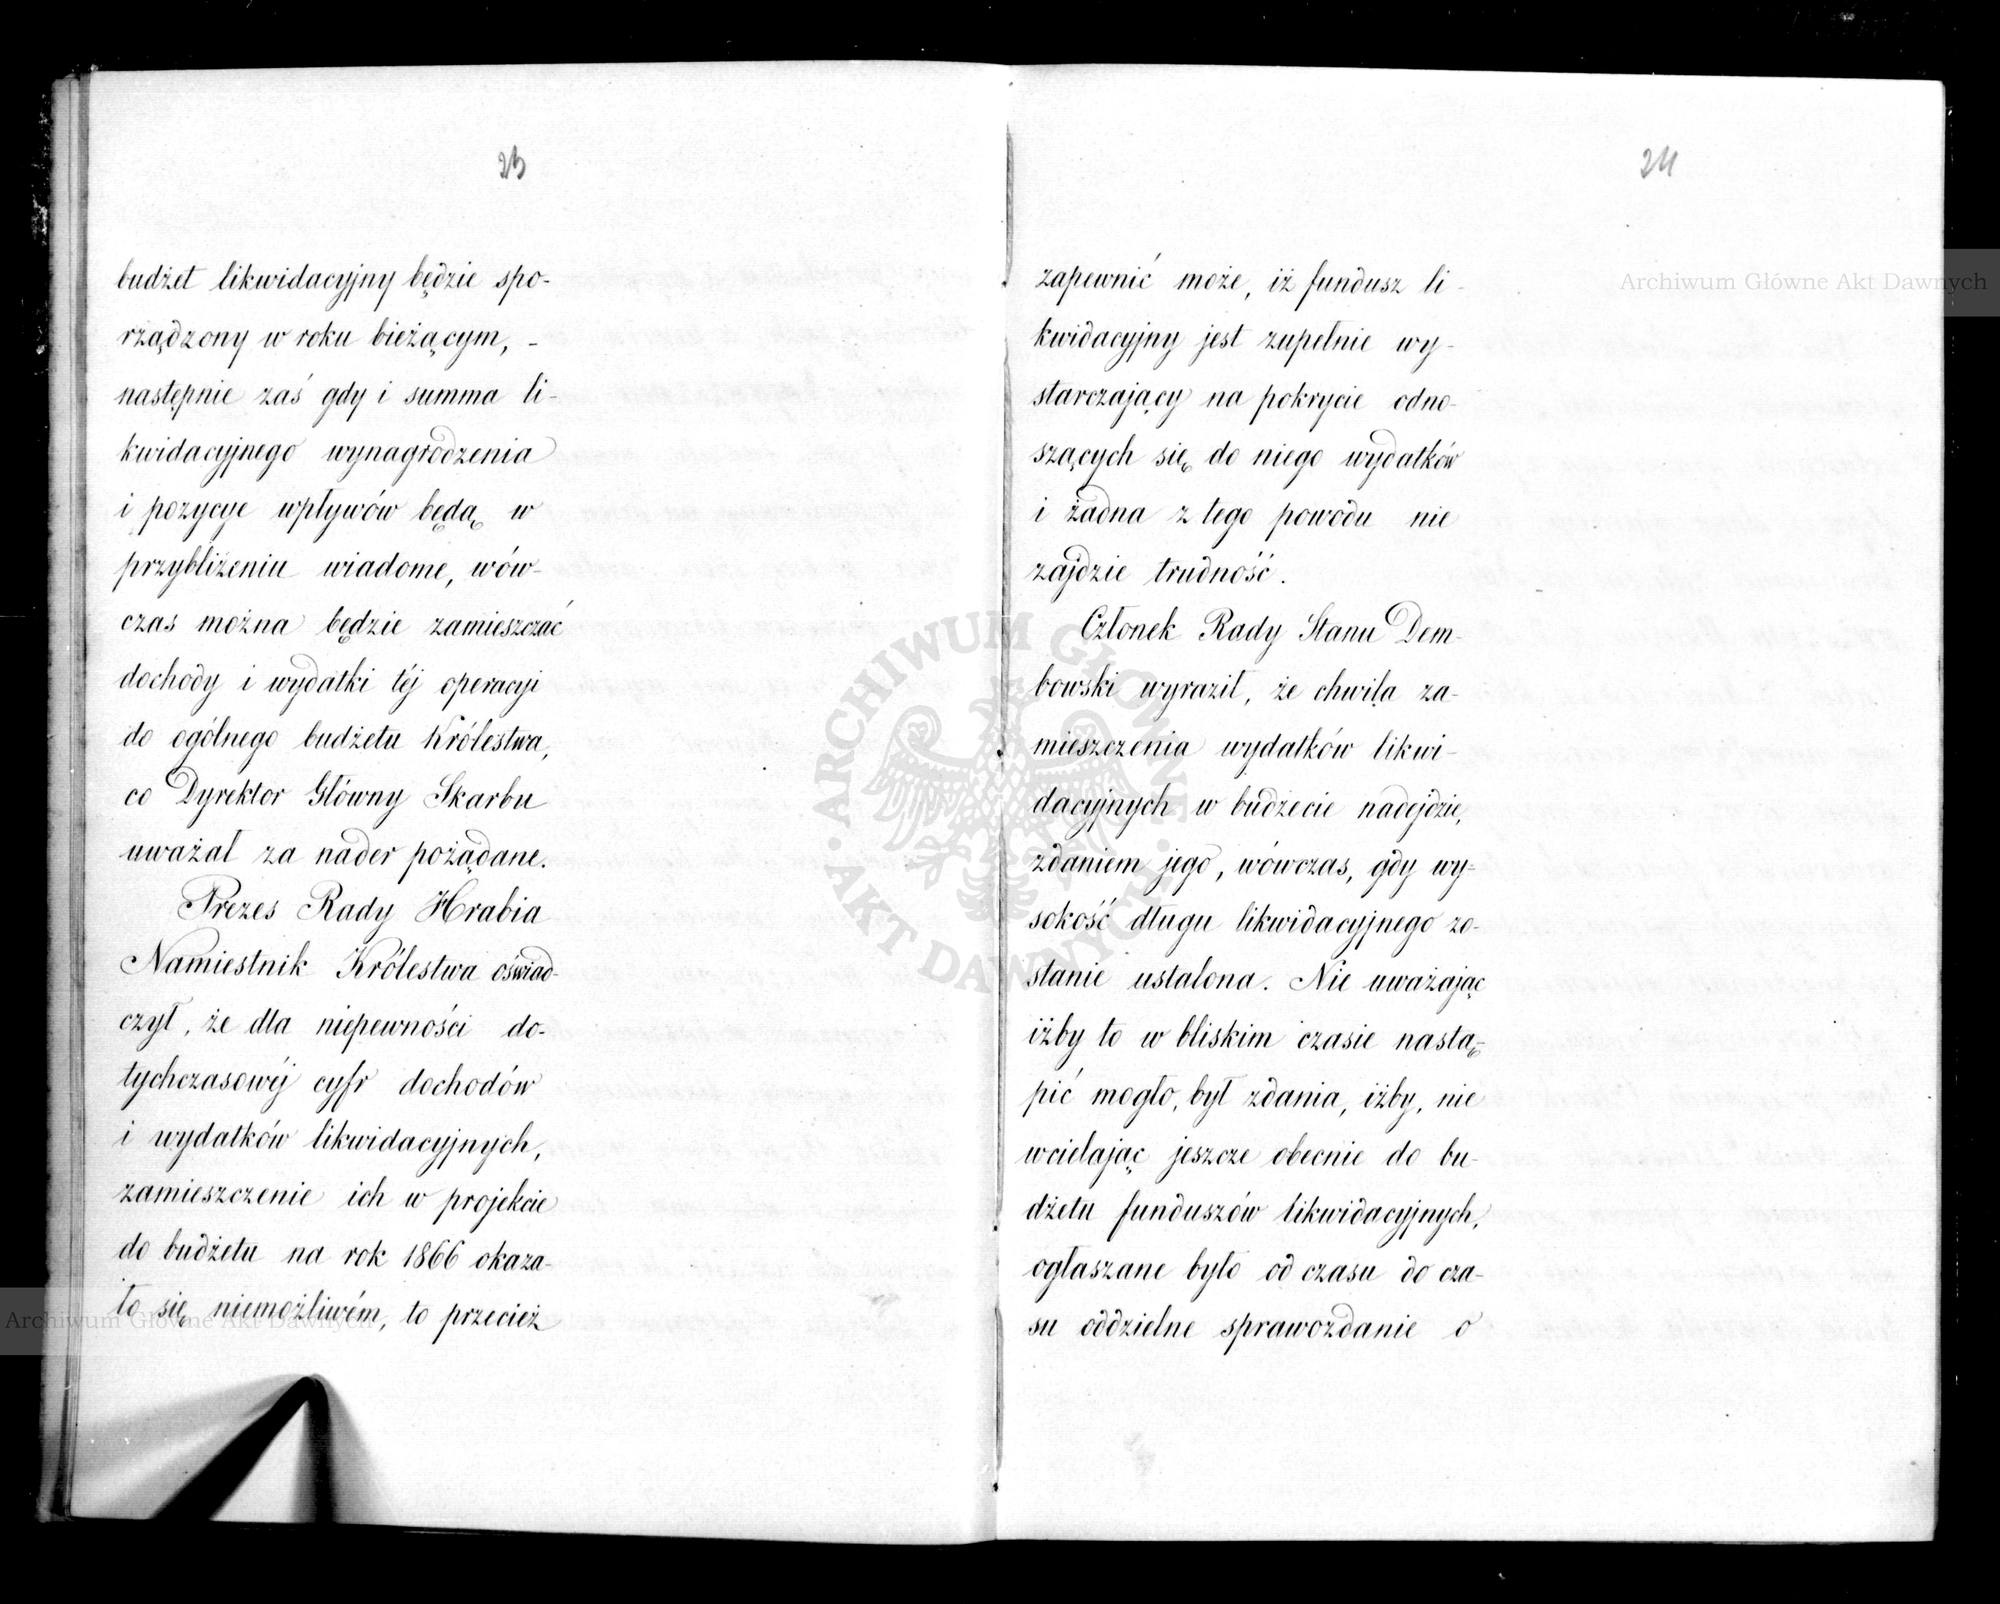 23
budżet likwidacyjny będzie spo-
rządzony w roku bieżącym, -
następnie zaś gdy i summa li-
kwidacyjnego wynagrodzenia
i pozycye wpływów będą w
przybliżeniu wiadome, wów-
czas można będzie zamieszczać
dochody i wydatki téj operacyi
do ogólnego budżetu Królestwa,
co Dyrektor Główny Skarbu
uważał za nader pożądane.
Prezes Rady Hrabia
Namiestnik Królestwa oświad-
czył, że dla niepewności do-
tychczasowéj cyfr dochodów
i wydatków likwidacyjnych,
zamieszczenie ich w projekcie
do budżetu na rok 1866 okaza-
ło się niemożliwém, to przecież
24
zapewnić może, iż fundusz li-
kwidacyjny jest zupełnie wy-
starczający na pokrycie odno-
szących się do niego wydatków
i żadna z tego powodu nie
zajdzie trudność.
Członek Rady Stanu Dem-
bowski wyraził, że chwila za-
mieszczenia wydatków likwi-
dacyjnych w budżecie nadejdzie,
zdaniem jego, wówczas, gdy wy-
sokość długu likwidacyjnego zo-
stanie ustalona. Nie uważając
iżby to w bliskim czasie nastą-
pić mogło, był zdania, iżby, nie
wcielając jeszcze obecnie do bu-
dżetu funduszów likwidacyjnych,
ogłaszane było od czasu do cza-
su oddzielne sprawozdanie o
Archiwum Główne Akt Dawnych
Archiwum Główne Akt Dawnych
ARCHIWUM GŁÓWNE
AKT DAWNYCH